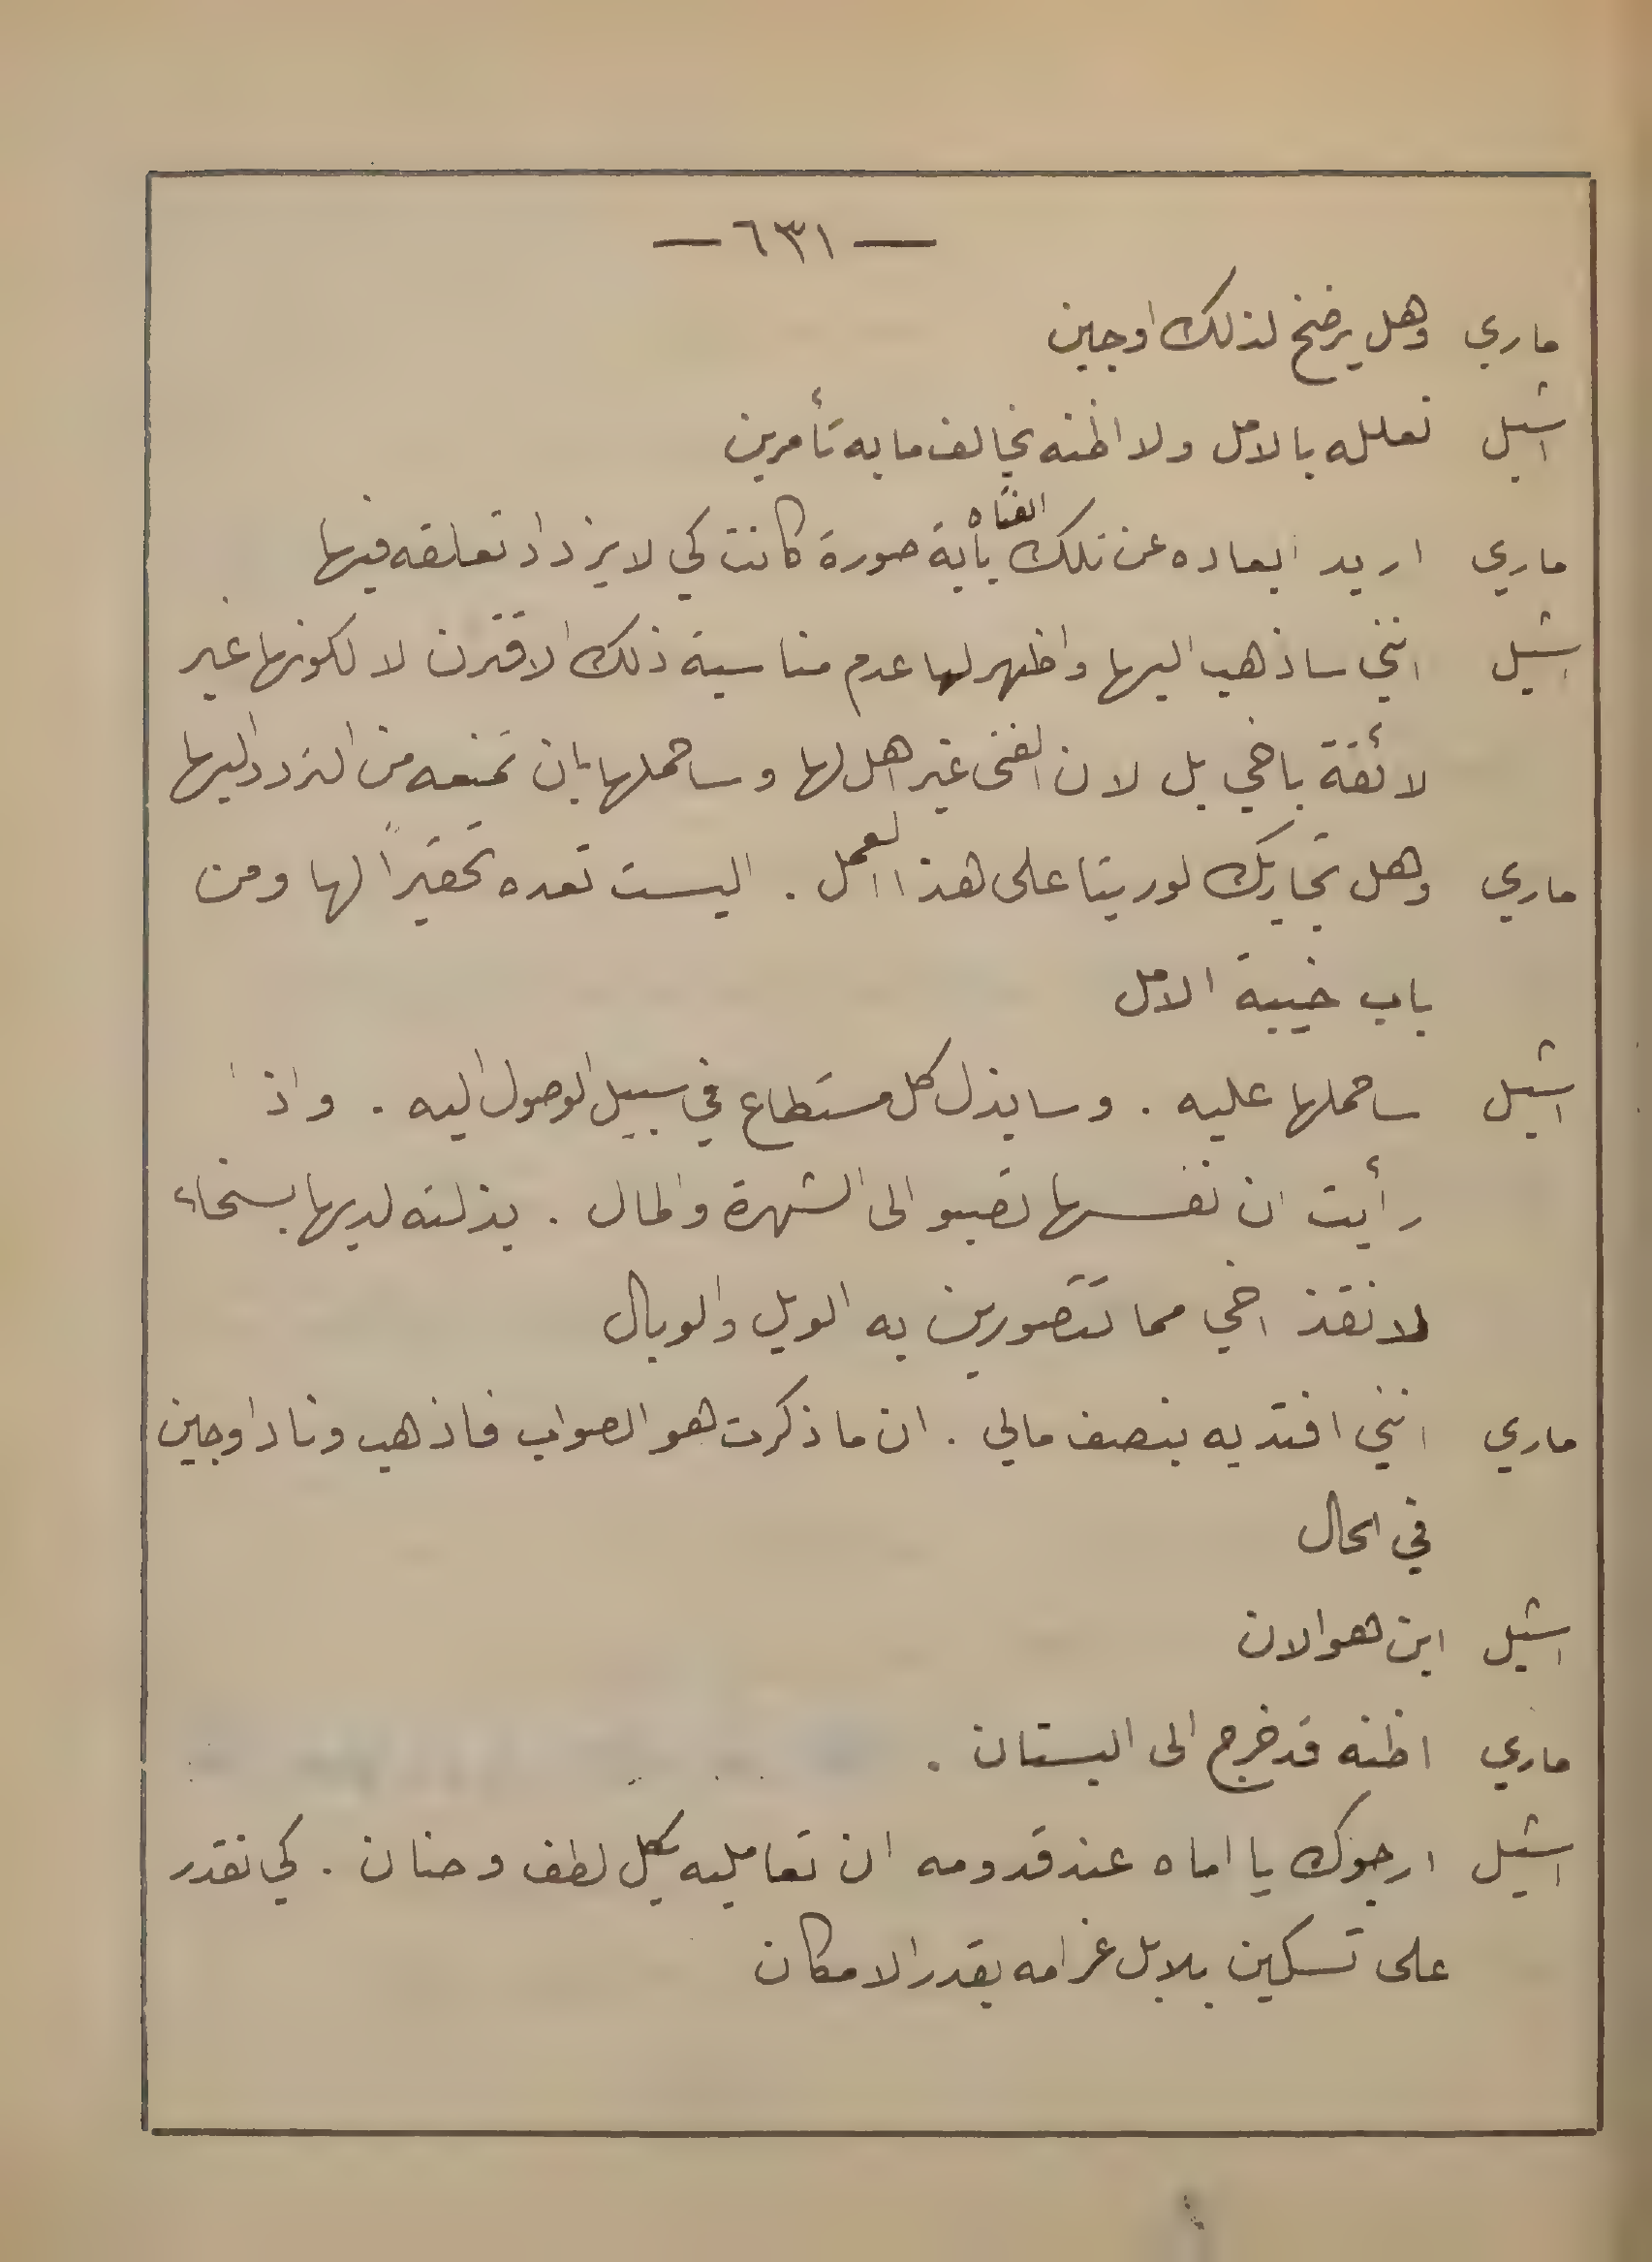 — ٦٣١ —
ماري وهل يرضخ لذلك اوجين
اشيل نعلله بالامل ولا اظنه يخالف ما به تأمرين
ماري اريد ابعاده عن تلك الفتاة بأية صورة كانت كي لا يزداد تعلقه فيها
اشيل انني ساذهب اليها واظهر لها عدم مناسبة ذلك الاقترن لا لكونها غير
لائقة باخي بل لان الفتى غير اهل لها وساحملها بان تمنعه من التردد اليها
ماري وهل تجاريك لوريتا على هذا العمل . اليست تعده تحقيراً لها ومن
باب خيبة الامل
اشيل ساحملها عليه . وسابذل كل مستطاع في سبيل الوصول اليه . واذا
رأيت ان نفسها تصبو الى الشهرة والمال . بذلته لديها بسخاء
لانقذ اخي مما تتصورين به الويل والوبال
ماري انني افتديه بنصف مالي . ان ما ذكرت هو الصواب فاذهب وناد اوجين
في الحال
اشيل اين هو الان
ماري اظنه قد خرج الى البستان .
اشيل ارجوك يا اماه عند قدومه ان تعامليه بكل لطف وحنان . كي نقدر
على تسكين بلابل غرامه بقدر الامكان